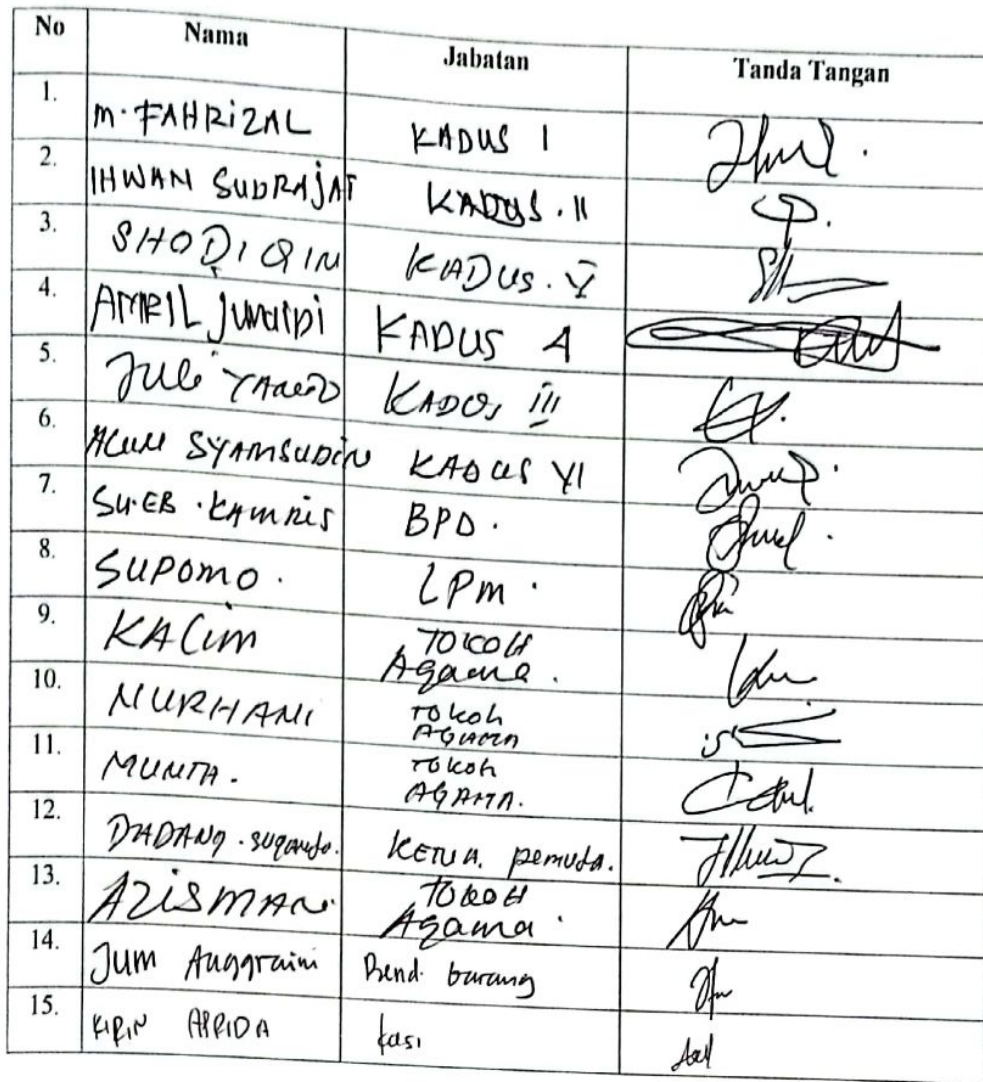 No Nama Jabatan Tanda Tangan
1. M. FAHRIZAL KADUS I
2. IHWAN SUDRAJAT KADUS. II
3. SHODIQIN KADUS. V
4. AMRIL Junaipi KADUS 4
5. Juli KADUS III
6. SYAMSUDIN KADUS VI
7. SU.EB. KAMRIS BPD.
8. SUPOMO. LPM.
9. KALIM TOKOH
Agama.
10. NURHANI TOKOH
AGAMA
11. MUNTA. TOKOH
AGAMA.
12. DADANG. Suganda. KETUA. pemuda.
13. AZISMAN. TOKOH
Agama.
14. Jum Anggraini Bend. barang
15. KIRIN APRIDA kasi